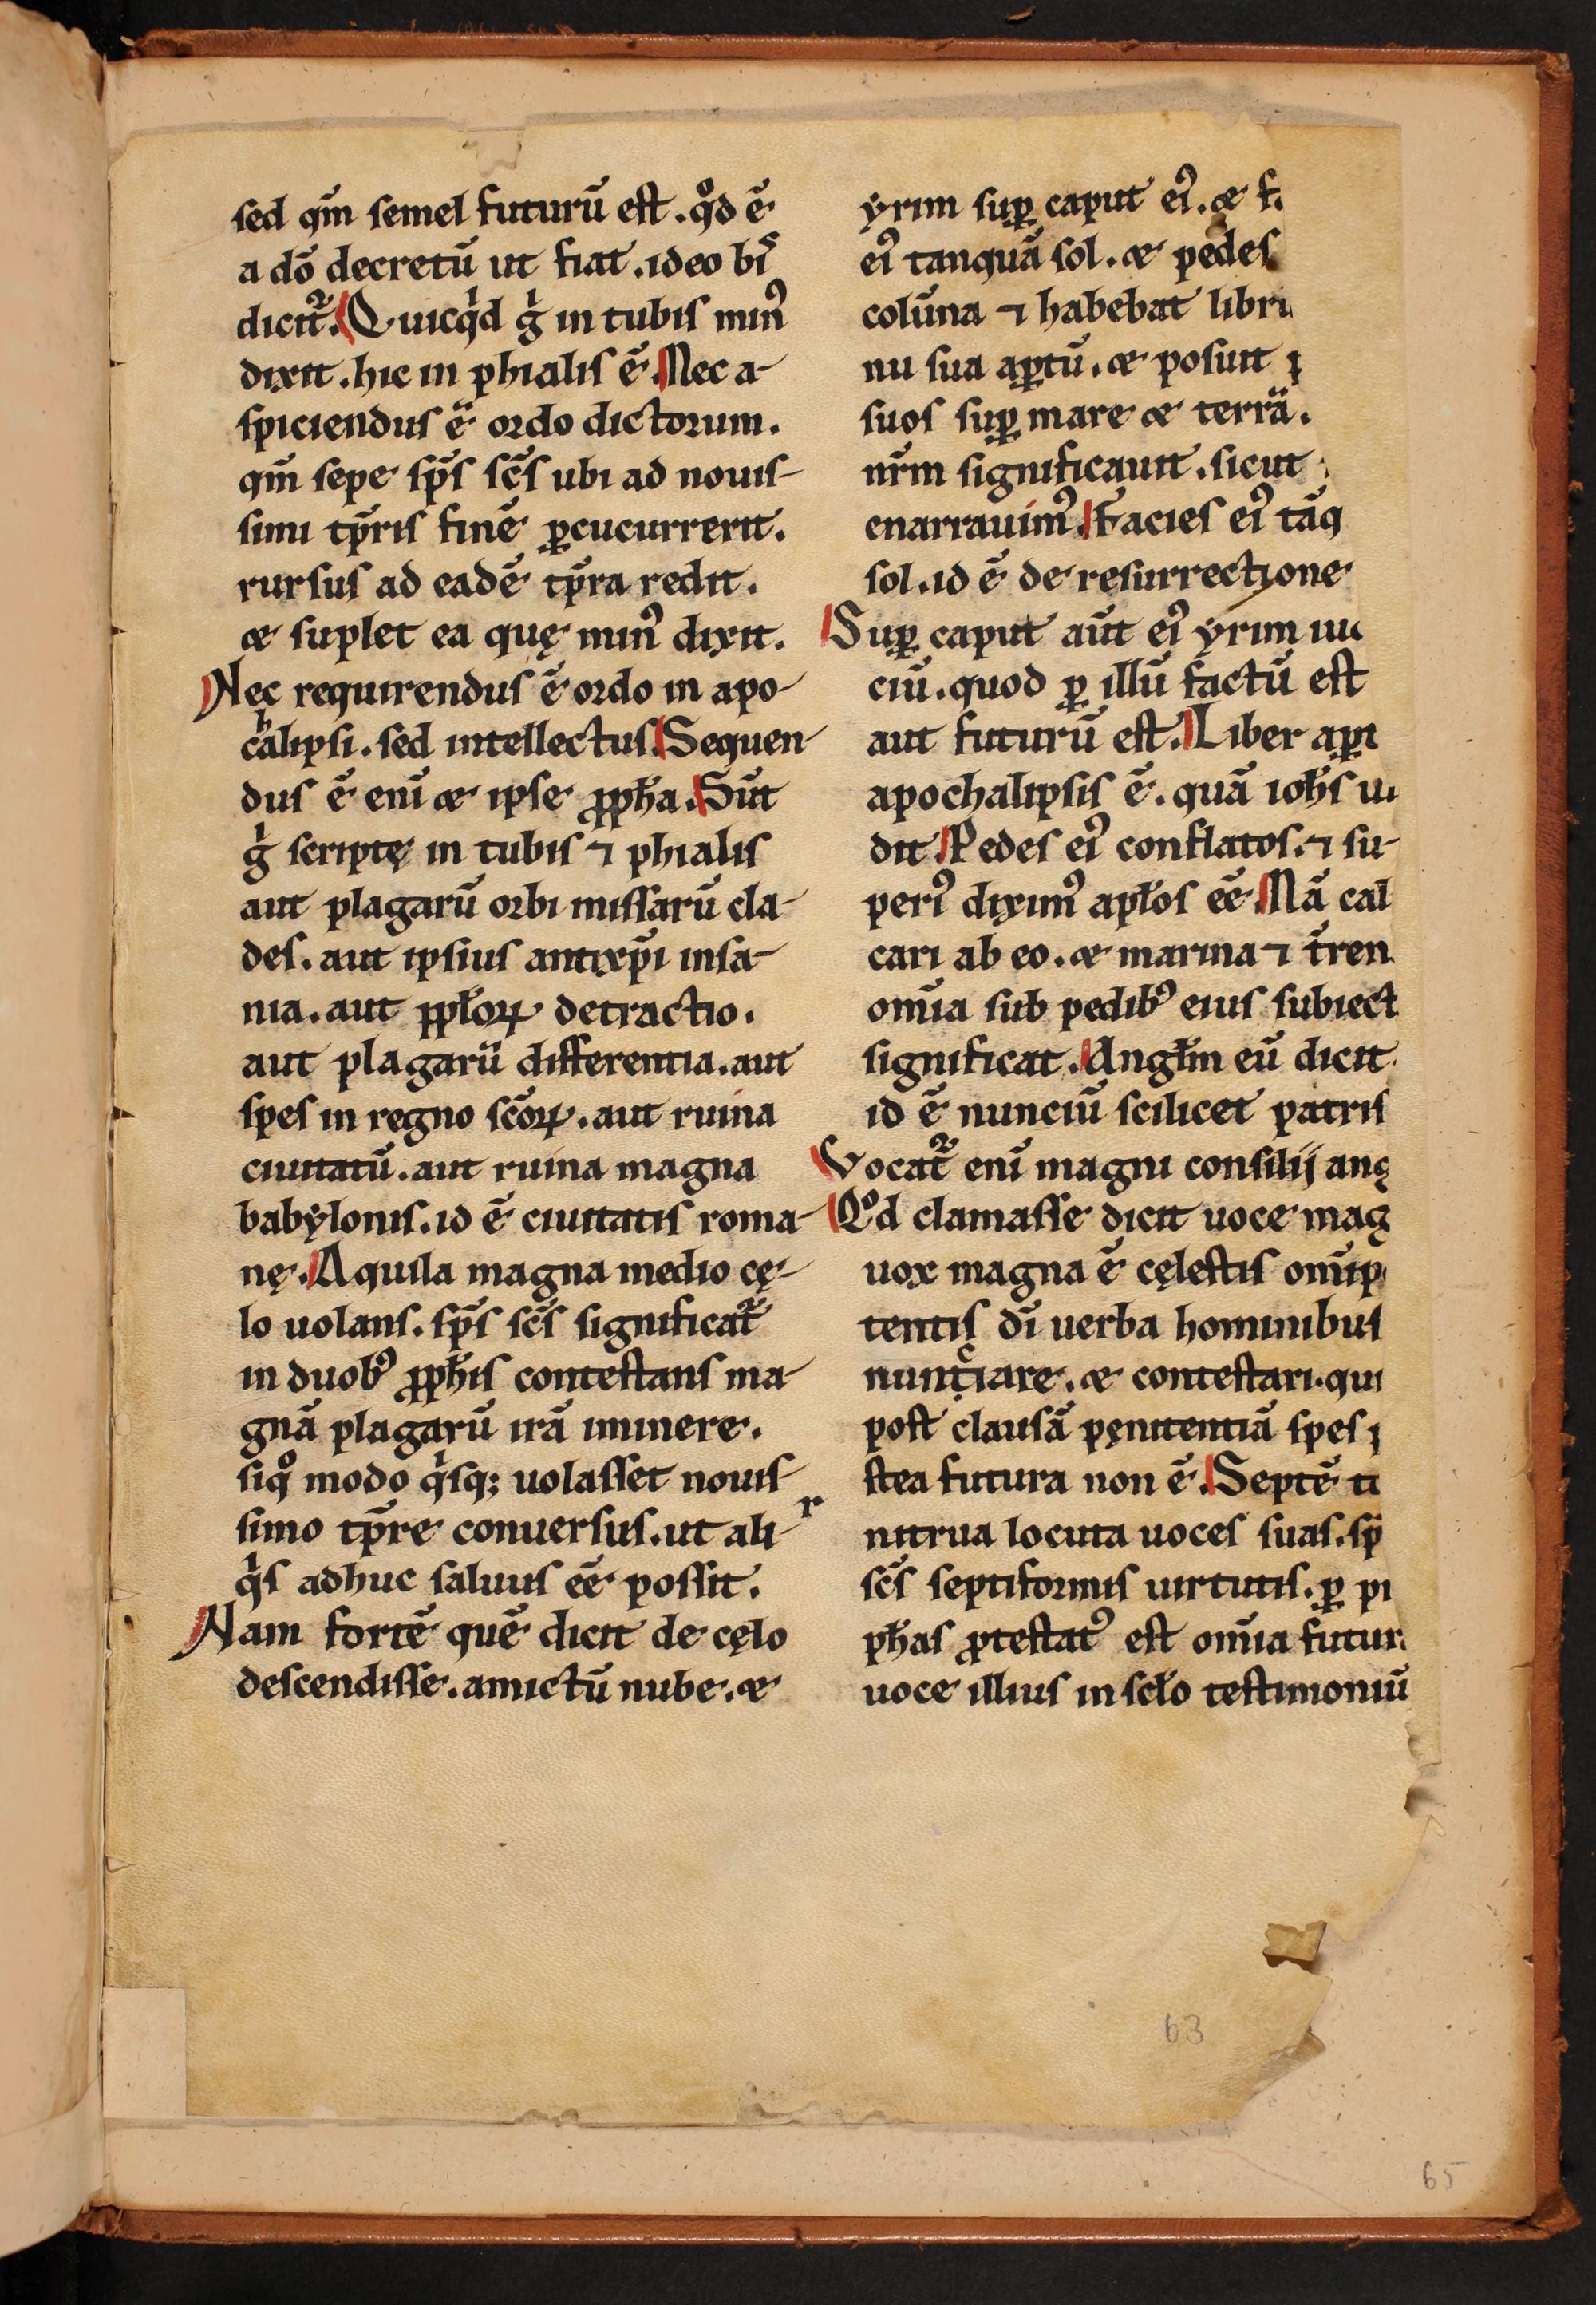 sed qm̄ semel futurū est. qͦd ē
a dō decretū ut fiat. ideo bıˢ
dicit᷑. Quicqͥd gͥ in tubis min᾽
dixit. hic in phialis ē. Nec a-
spiciendus ē ordo dictorum.
qm̄ sepe sp̄s sc̄s ubi ad nouis-
simi tp̄ris finē ꝑcucurrerit.
rursus ad eadē tp̄ra redit.
æ suplet ea quę min᾽ dixit.
Nec requirendus ē ordo in apo-
cʰalipsi. sed intellectus. Sequen-
dus ē enī æ ipse ꝓph̄a. Sūt
gͥ scriptę in tubis ⁊ phialis
aut plagarū orbi missarū cla-
des. aut ipsius antixp̄i insa-
nia. aut ppłoꝝ detractio.
aut plagarū differentia. aut
spes in regno sc̄oꝝ. aut ruina
ciuitatū. aut ruina magna
babẏlonis. id ē ciuitatis roma-
nę. Aquila magna medio cę-
lo uolans. sp̄s sc̄s significat᷑
in duob᾽ ꝓph̄is contestans ma-
gnā plagarū irā iminere.
siqͦ modo qͥsq; uolasset nouis-
simo tp̄re conuersus. ut ali-
qͥs adhuc saluus eē possit.
Nam fortē quē dicit de cęlo
descendisse. amictū nube. æ
ẏrim suꝑ caput ei᾽. æ f
ei᾽ tanquā sol. æ pedes
colūna ⁊ habebat libr
nu sua aꝑtū. æ posuit
suos suꝑ mare æ terrā.
nr̄m significauit. sicut
enarrauim᾽. Facies ei᾽ tāq
sol. id ē de resurrectione
Suꝑ caput aūt ei᾽ ẏrim iu
ciū. quod ꝑ illū factū est
aut futurū est. Liber aꝑt
apochalipsis ē. quā ioh̄s ui
dit. Pedes ei᾽ conflatos. ⁊ su-
peri᾽ dixim᾽ apłos eē. Nā cal
cari ab eo. æ marina ⁊ t̄ren
om̄ia sub pedib᾽ eius subiect
significat. Angłm eū dicit
id ē nunciū scilicet patris
Vocat᷑ enī magni consilij ang
Qͦd clamasse dicit uoce mag
uox magna ē cęlestis om̄ip
tentis dī uerba hominibus
nunt͑iare. æ contestari. qui
post clausā pęnitentiā spes p
stea futura non ē. Septē to
nitrua locuta uoces suas. sp̄
sc̄s septiformis uirtutis. ꝑ p
ph̄as ꝓtestat᾽ est om̄ia futur
uoce illius in scło testimoniū
63
65